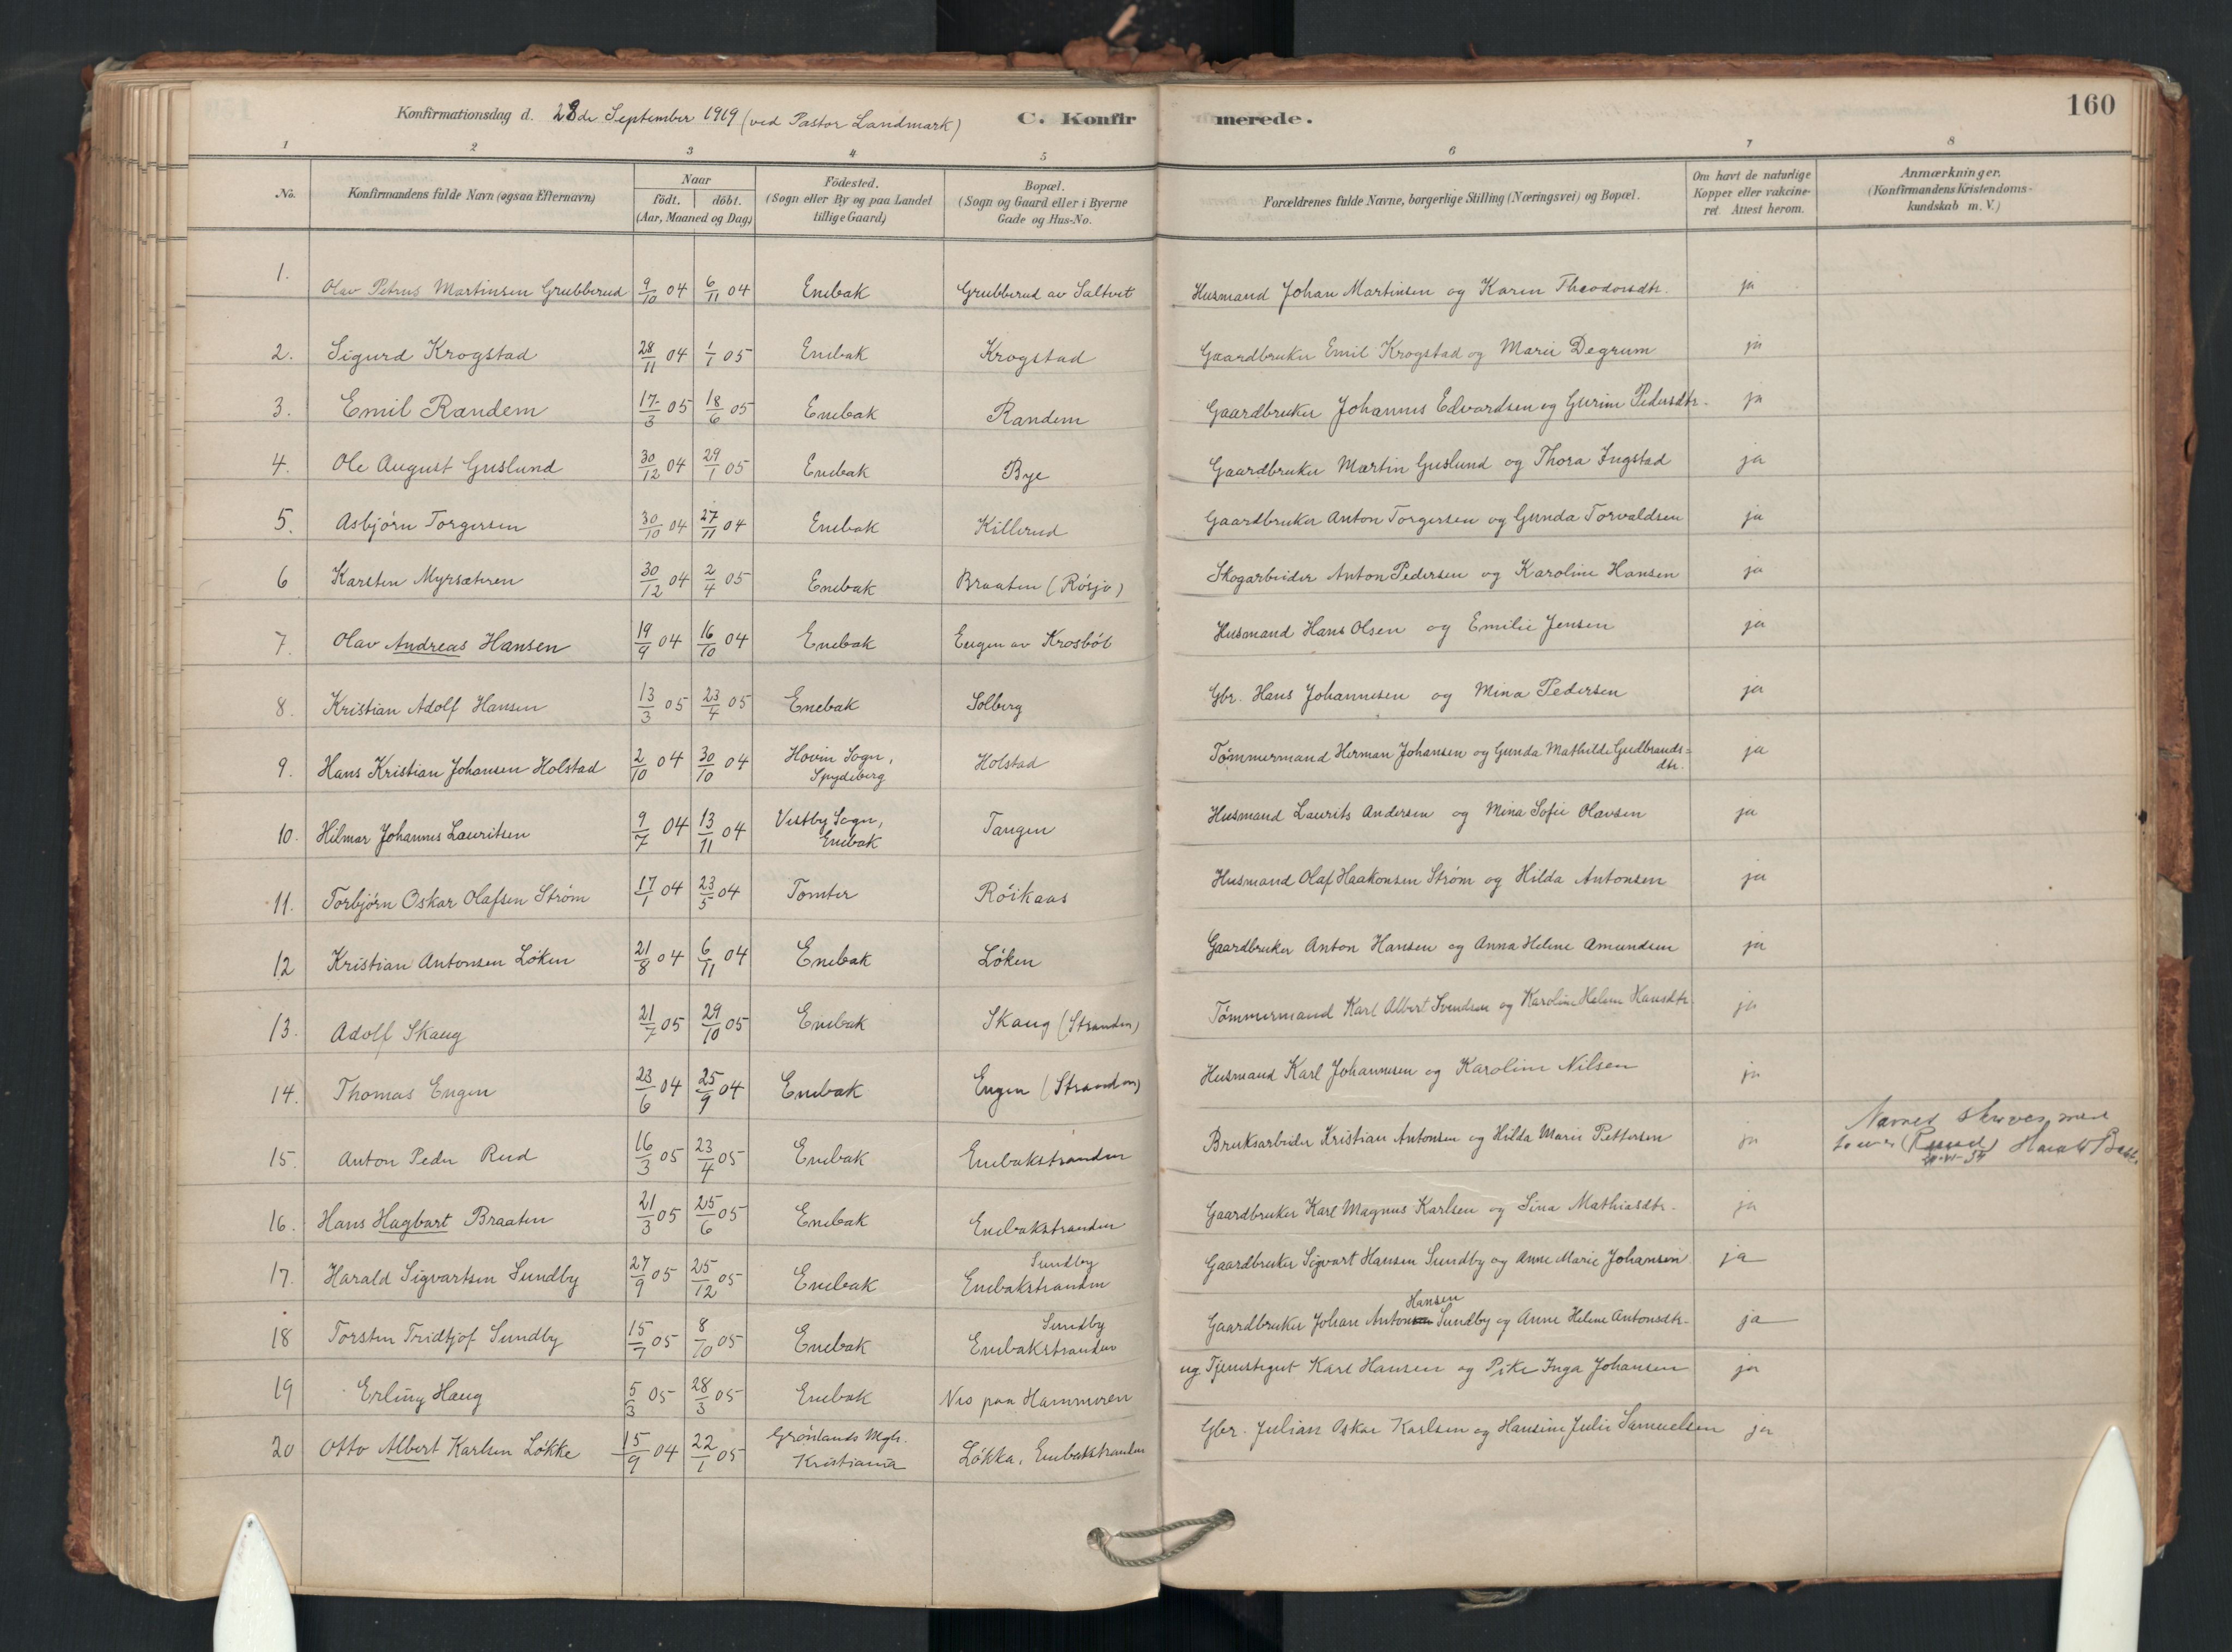 Konfirmationsdag d. 28de September 1919 (ved Pastor Landmark) C. Konfirmerede. 160
1 2 3 4 5 6 7 8
No. Konfirmandens fulde Navn (ogsaa Efternavn) Naar født. døbt. (Aar, Maaned og Dag) Fødested. (Sogn eller By og paa Landet tillige Gaard) Bopæl. (Sogn og Gaard eller i Byerne Gade og Hus-No. Forældrenes fulde Navne, borgerlige Stilling (Næringsvei) og Bopæl. Om havt de naturlige Kopper eller vakcineret. Attest herom. Anmærkninger. (Konfirmandens Kristendomskundskab m. V.)
1. Olav Petrus Martinsen Grubberud 9/10 04 6/11 04 Enebak Grubberud av Saltvet Husmand Johan Martinsen og Karen Theodorsdtr. ja
2. Sigurd Krogstad 28/11 04 1/1 05 Enebak Krogstad Gaardbruker Emil Krogstad og Marie Degrum ja
3. Emil Randem 17/3 05 18/6 05 Enebak Randem Gaardbruker Johannes Edvardsen og Gurine Pedersdtr. ja
4. Ole August Guslund 30/12 04 29/1 05 Enebak Bye Gaardbruker Martin Guslund og Thora Ingstad ja
5. Asbjørn Torgersen 30/10 04 27/11 04 Enebak Killerud Gaardbruker Anton Torgersen og Gunda Torvaldsen ja
6 Karsten Myrsæteren 30/12 04 2/4 05 Enebak Braaten (Røsjø) Skogarbeider Anton Pedersen og Karoline Hansen ja
7. Olav Andreas Hansen 19/9 04 16/10 04 Enebak Engen av Krosbøl Husmand Hans Olsen og Emilie Jensen ja
8. Kristian Adolf Hansen 13/3 05 23/4 05 Enebak Solberg Gbr. Hans Johannesen og Mina Pedersen ja
9. Hans Kristian Johansen Holstad 2/10 04 30/10 04 Hovin Sogn, Spydeberg Holstad Tømmermand Herman Johansen og Gunda Mathilde Gudbrands=dtr. ja
10. Hilmar Johannes Lauritsen 9/7 04 13/11 04 Vestby Sogn, Enebak Tangen Husmand Laurits Andersen og Mina Sofie Olavsen ja
11. Torbjørn Oskar Olafsen Strøm 17/1 04 23/5 04 Tomter Røikaas Husmand Olaf Haakonsen Strøm og Hilda Antonsen ja
12 Kristian Antonsen Løken 21/8 04 6/11 04 Enebak Løken Gaardbruker Anton Hansen og Anna Helene Amundsen ja
13. Adolf Skaug 21/7 05 29/10 05 Enebak Skaug (Stranden) Tømmermand Karl Albert Svendsen og Karoline Helene Hansdtr. ja
14. Thomas Engen 23/6 04 25/9 04 Enebak Engen (Stranden) Husmand Karl Johannesen og Karoline Nilsen ja
15. Anton Peder Rud 16/3 05 23/4 05 Enebak Enebakstranden Bruksarbeider Kristian Antonsen og Hilda Marie Pettersen ja Navnet skrives med (Ruud)
16. Hans Hagbart Braaten 21/3 05 25/6 05 Enebak Enebakstranden Gaardbruker Karl Magnus Karlsen og Sina Mathiasdtr. ja
17. Harald Sigvartsen Sundby 27/9 05 25/12 05 Enebak Sundby Enebakstranden Gaardbruker Sigvart Hansen Sundby og Anne Marie Johansen ja
18 Torsten Fridtjof Sundby 15/7 05 8/10 05 Enebak Sundby Enebakstranden Gaardbruker Johan Antonsen Hansen Sundby og Anne Helene Antonsdtr. ja
19 Erling Haug 5/3 05 28/3 05 Enebak Nes paa Hammeren ug. Tjenstegut Karl Hansen og Pike Inga Johansen ja
20 Otto Albert Karlsen Løkke 15/9 04 22/1 05 Grønlands Mgh. Kristiania Løkka, Enebakstranden Gbr. Julian Oskar Karlsen og Hansine Julie Samuelsen ja